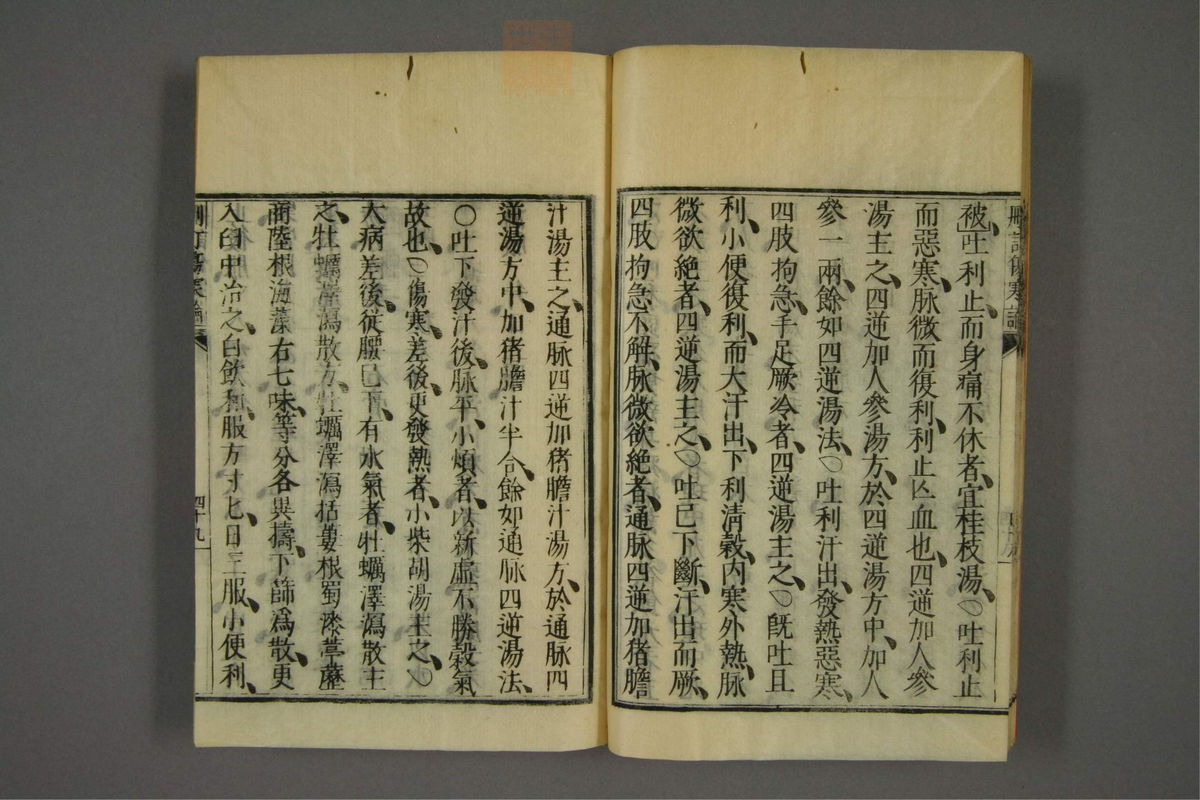 被吐利止而身痛不休者、宜桂枝湯、○吐利止
而惡寒、脉微而復利、利止亾血也、四逆加人參
湯主之、四逆加人參湯方、於四逆湯方中、加人
參一兩、餘如四逆湯法、○吐利汗出、發熱惡寒、
四肢拘急、手足厥冷者、四逆湯主之、○既吐且
利、小便復利、而大汗出、下利清穀、內寒外熱、脉
微欲絕者、四逆湯主之、○吐已下斷、汗出而厥、
四肢拘急不解、脉微欲絕者、通脉四逆加猪膽
汁湯主之、通脉四逆加猪膽汁湯方、於通脉四
逆湯方中、加猪膽汁半合、餘如通脉四逆湯法、
○吐下發汗後、脉平、小煩者、以新虛不勝穀氣
故也、○傷寒、差後、更發熱者、小柴胡湯主之、○
大病差後、從腰已下、有水氣者、牡蠣澤瀉散主
之、牡蠣澤瀉散方、牡蠣澤瀉括蔞根蜀漆葶藶
商陸根海藻右七味、等分各異擣、下篩爲散、更
入臼中治之、白飲和服方寸匕、日三服、小便利、
刪訂傷寒論
四十九